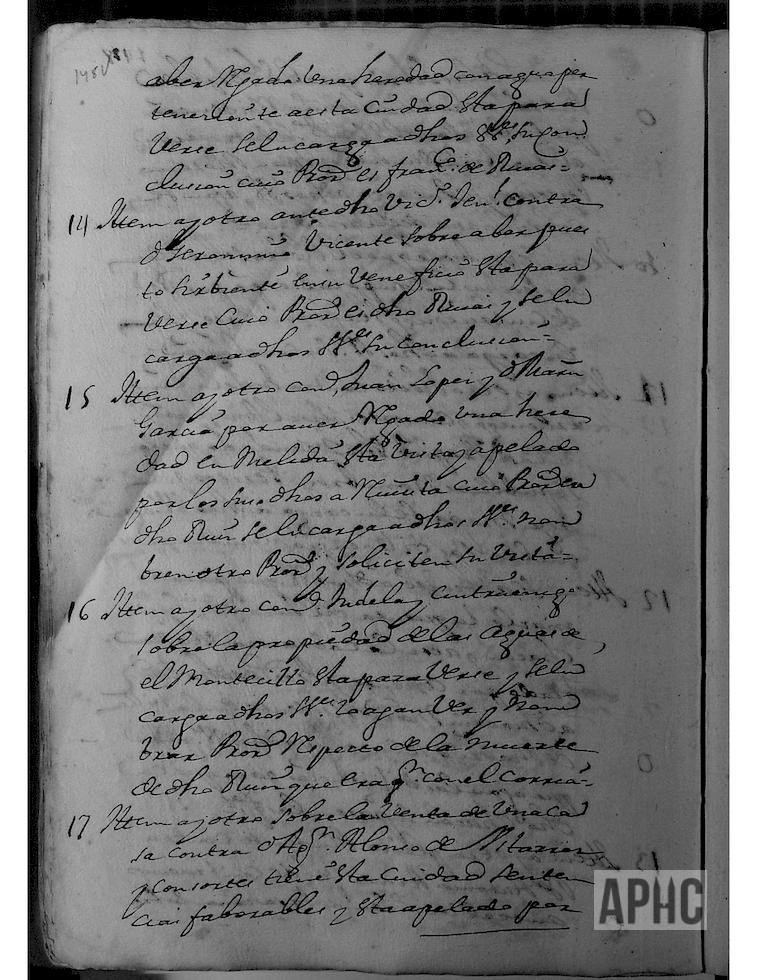 aber Regado Una heredad con agua per
teneciente a esta Ciudad Esta para
Verse Se encarga a dhos SSres. Su Con
clusion cuio Pror. es franco. de
14 Ittem ay otro ante dho Vico. Jenl. contra
Dn Jeronimo Vicente Sobre aber pues
to en su Veneficio Esta para
Verse Cuio Pror. es dho y Se en
carga a dhos SSres. Su Conclusion =
15 Ittem ay otro con Dn. Juan Lopez y Dn Martin
Garcia por aver Regado una here
dad en Melida Esta Vista y apelado
por los Suso dhos a cuio Pror. era
dho Se encarga a dhos SSres. nom
bren otro Pror. y Soliciten Su Vista =
16 Ittem ay otro con Tudela y Cintruenigo
Sobre la propiedad de las Aguas de
el Montecillo Esta para Verse y Se en
carga a dhos SSres. lo agan Ver y Nom
brar Pror. Respecto de la muerte
de dho que era qn. con el Corria =
17 Ittem ay otro Sobre la Venta de Una Ca
sa contra Dn Agn. Alonso de
y consortes tiene Esta Ciudad Senten
cias faborables y Esta apelado por
APHC